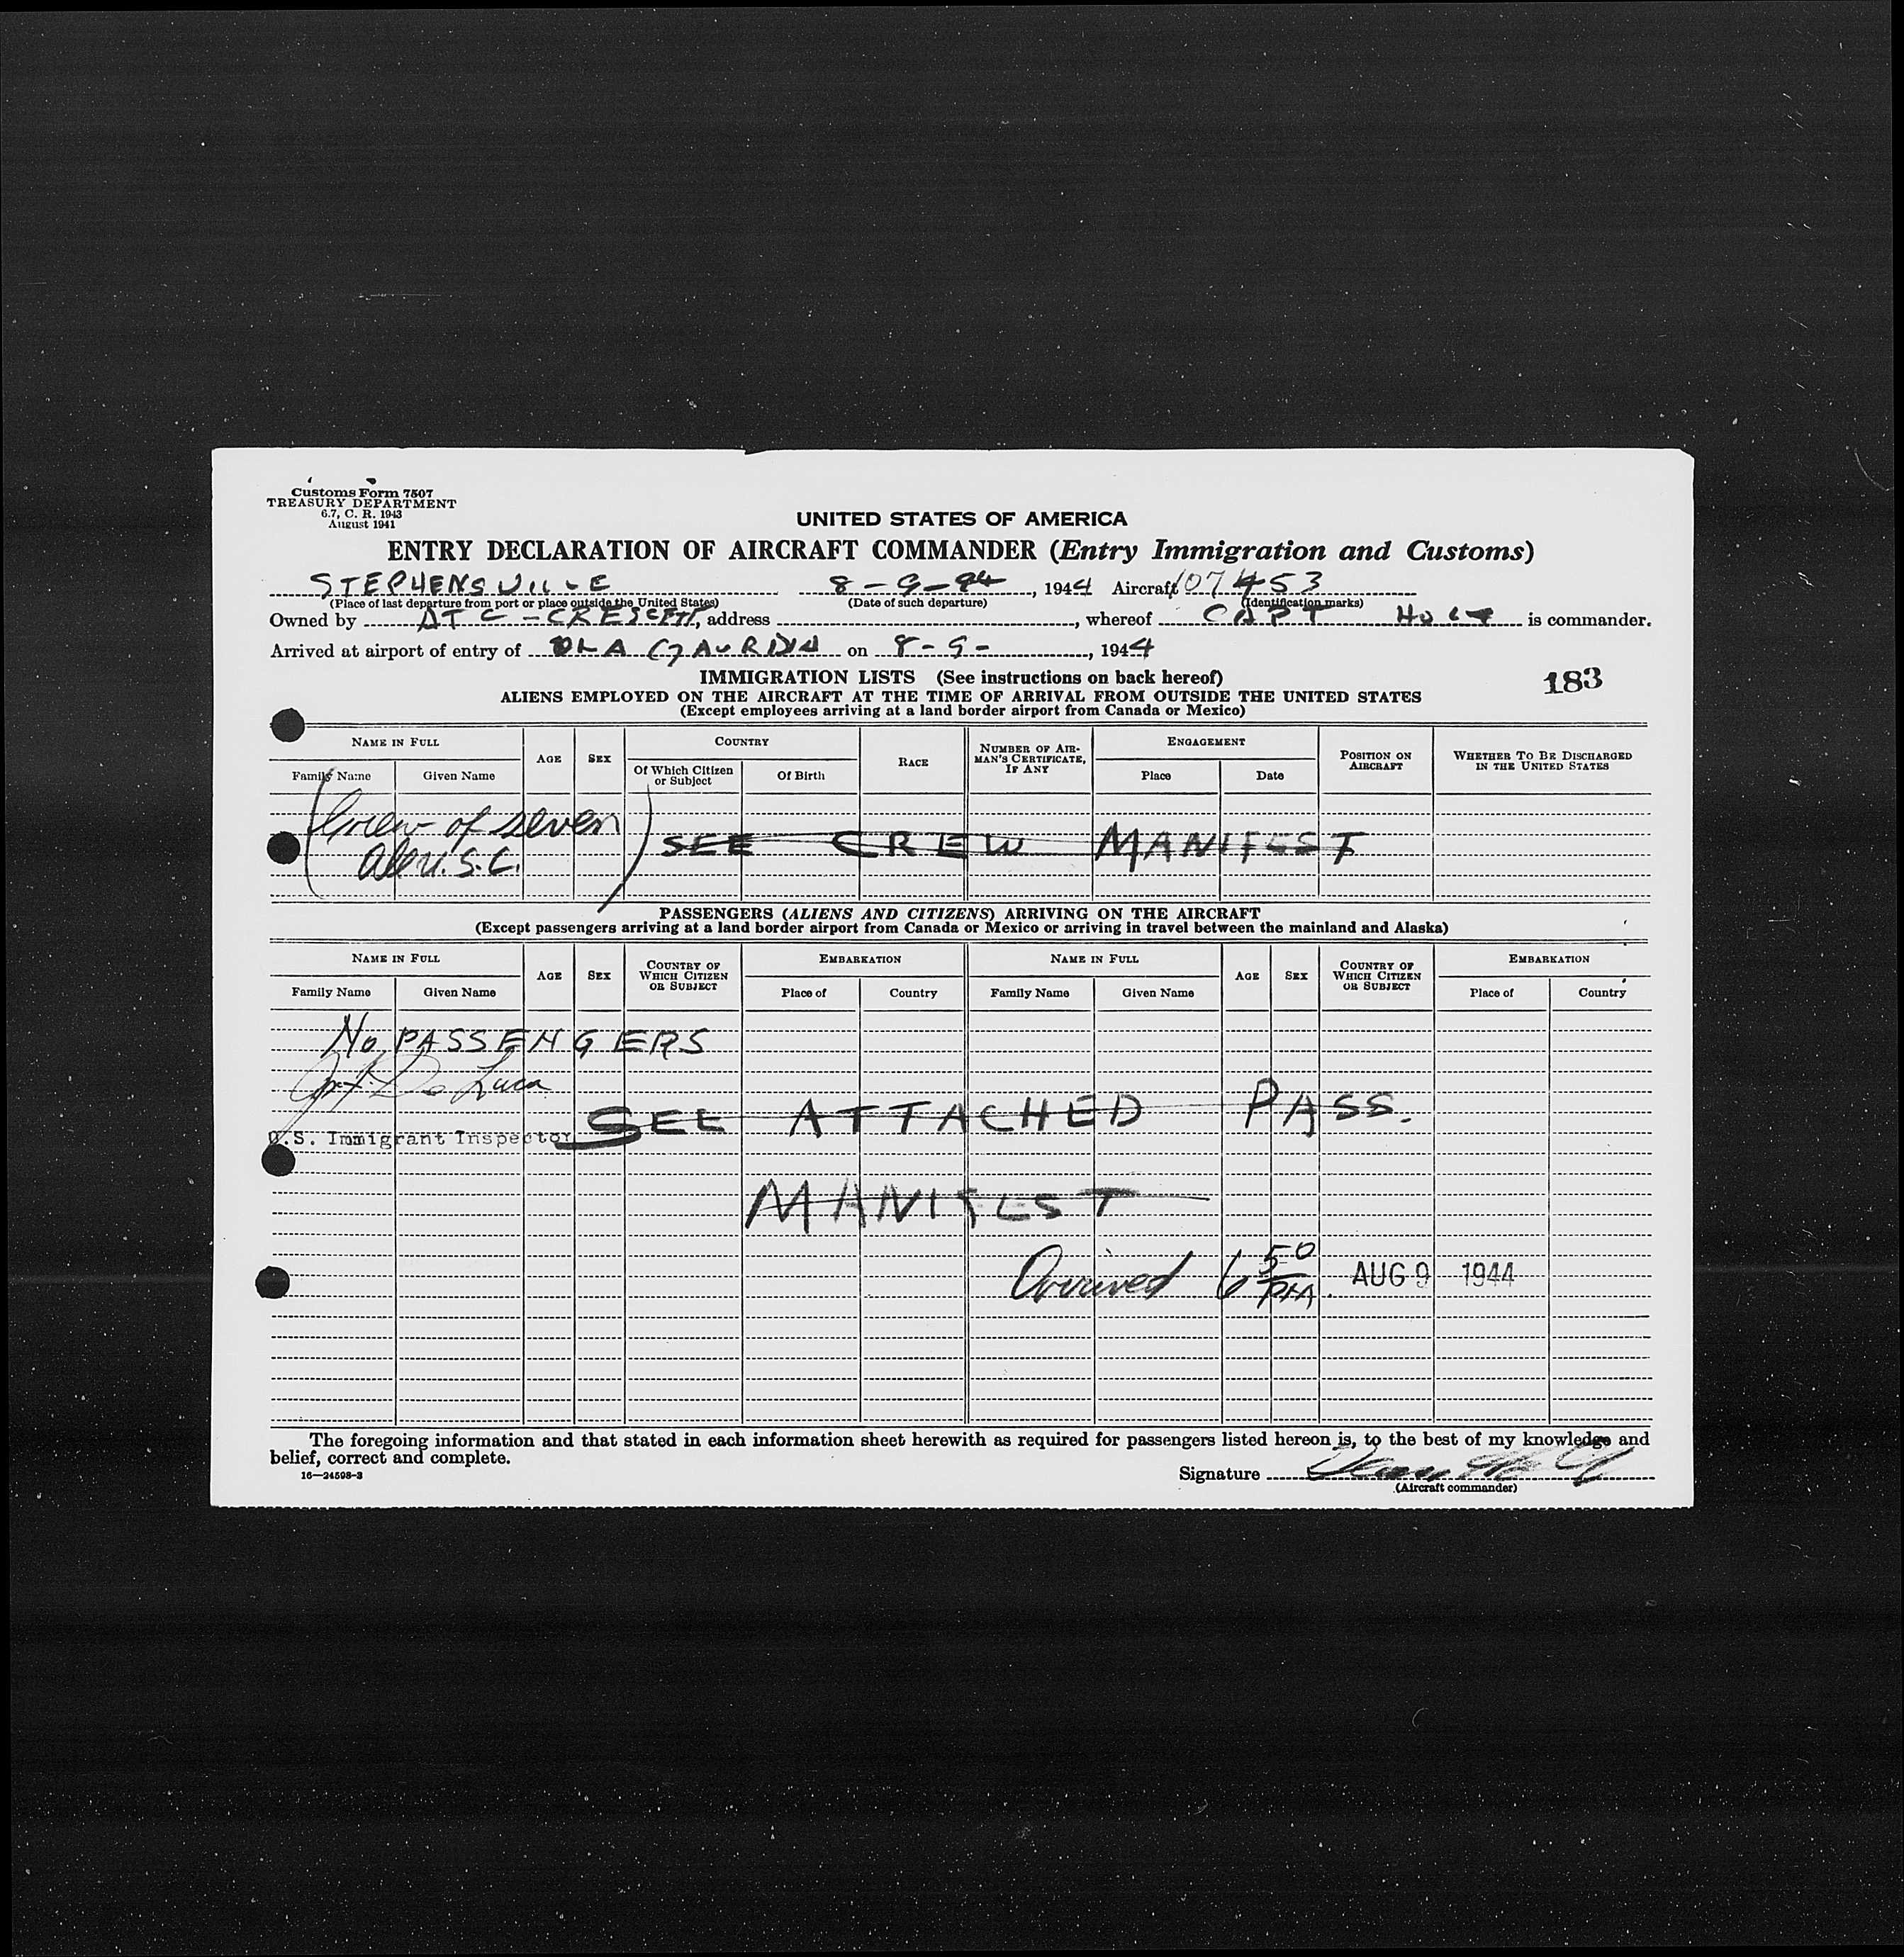 Customs Form 7507
TREASURY DEPARTMENT
6.7, C. R. 1943
August 1941
UNITED STATES OF AMERICA
ENTRY DECLARATION OF AIRCRAFT COMMANDER (Entry Immigration and Customs)
STEPHENSVILLE 8-9-44, 1944 Aircraft 107453
(Place of last departure from port or place outside the United States) (Date of such departure) (Identification marks)
Owned by ATC-CRESCENT, address , whereof CAPT HOLT is commander.
Arrived at airport of entry of LA GAURDIA on 8-9-, 1944
IMMIGRATION LISTS (See instructions on back hereof) 183
ALIENS EMPLOYED ON THE AIRCRAFT AT THE TIME OF ARRIVAL FROM OUTSIDE THE UNITED STATES
(Except employees arriving at a land border airport from Canada or Mexico)
NAME IN FULL AGE SEX COUNTRY RACE NUMBER OF AIRMAN'S CERTIFICATE, IF ANY ENGAGEMENT POSITION ON AIRCRAFT WHETHER TO BE DISCHARGED IN THE UNITED STATES
Family Name Given Name Of Which Citizen or Subject Of Birth Place Date
(Crew of seven
all U.S.C.) SEE CREW MANIFEST
PASSENGERS (ALIENS AND CITIZENS) ARRIVING ON THE AIRCRAFT
(Except passengers arriving at a land border airport from Canada or Mexico or arriving in travel between the mainland and Alaska)
NAME IN FULL AGE SEX COUNTRY OF WHICH CITIZEN OR SUBJECT EMBARKATION NAME IN FULL AGE SEX COUNTRY OF WHICH CITIZEN OR SUBJECT EMBARKATION
Family Name Given Name Place of Country Family Name Given Name Place of Country
No PASSENGERS
De Luca
SEE ATTACHED PASS.
U.S. Immigrant Inspector
MANIFEST
Arrived 6 50 PM. AUG 9 1944
The foregoing information and that stated in each information sheet herewith as required for passengers listed hereon is, to the best of my knowledge and
belief, correct and complete.
16—24598-3
Signature
(Aircraft commander)